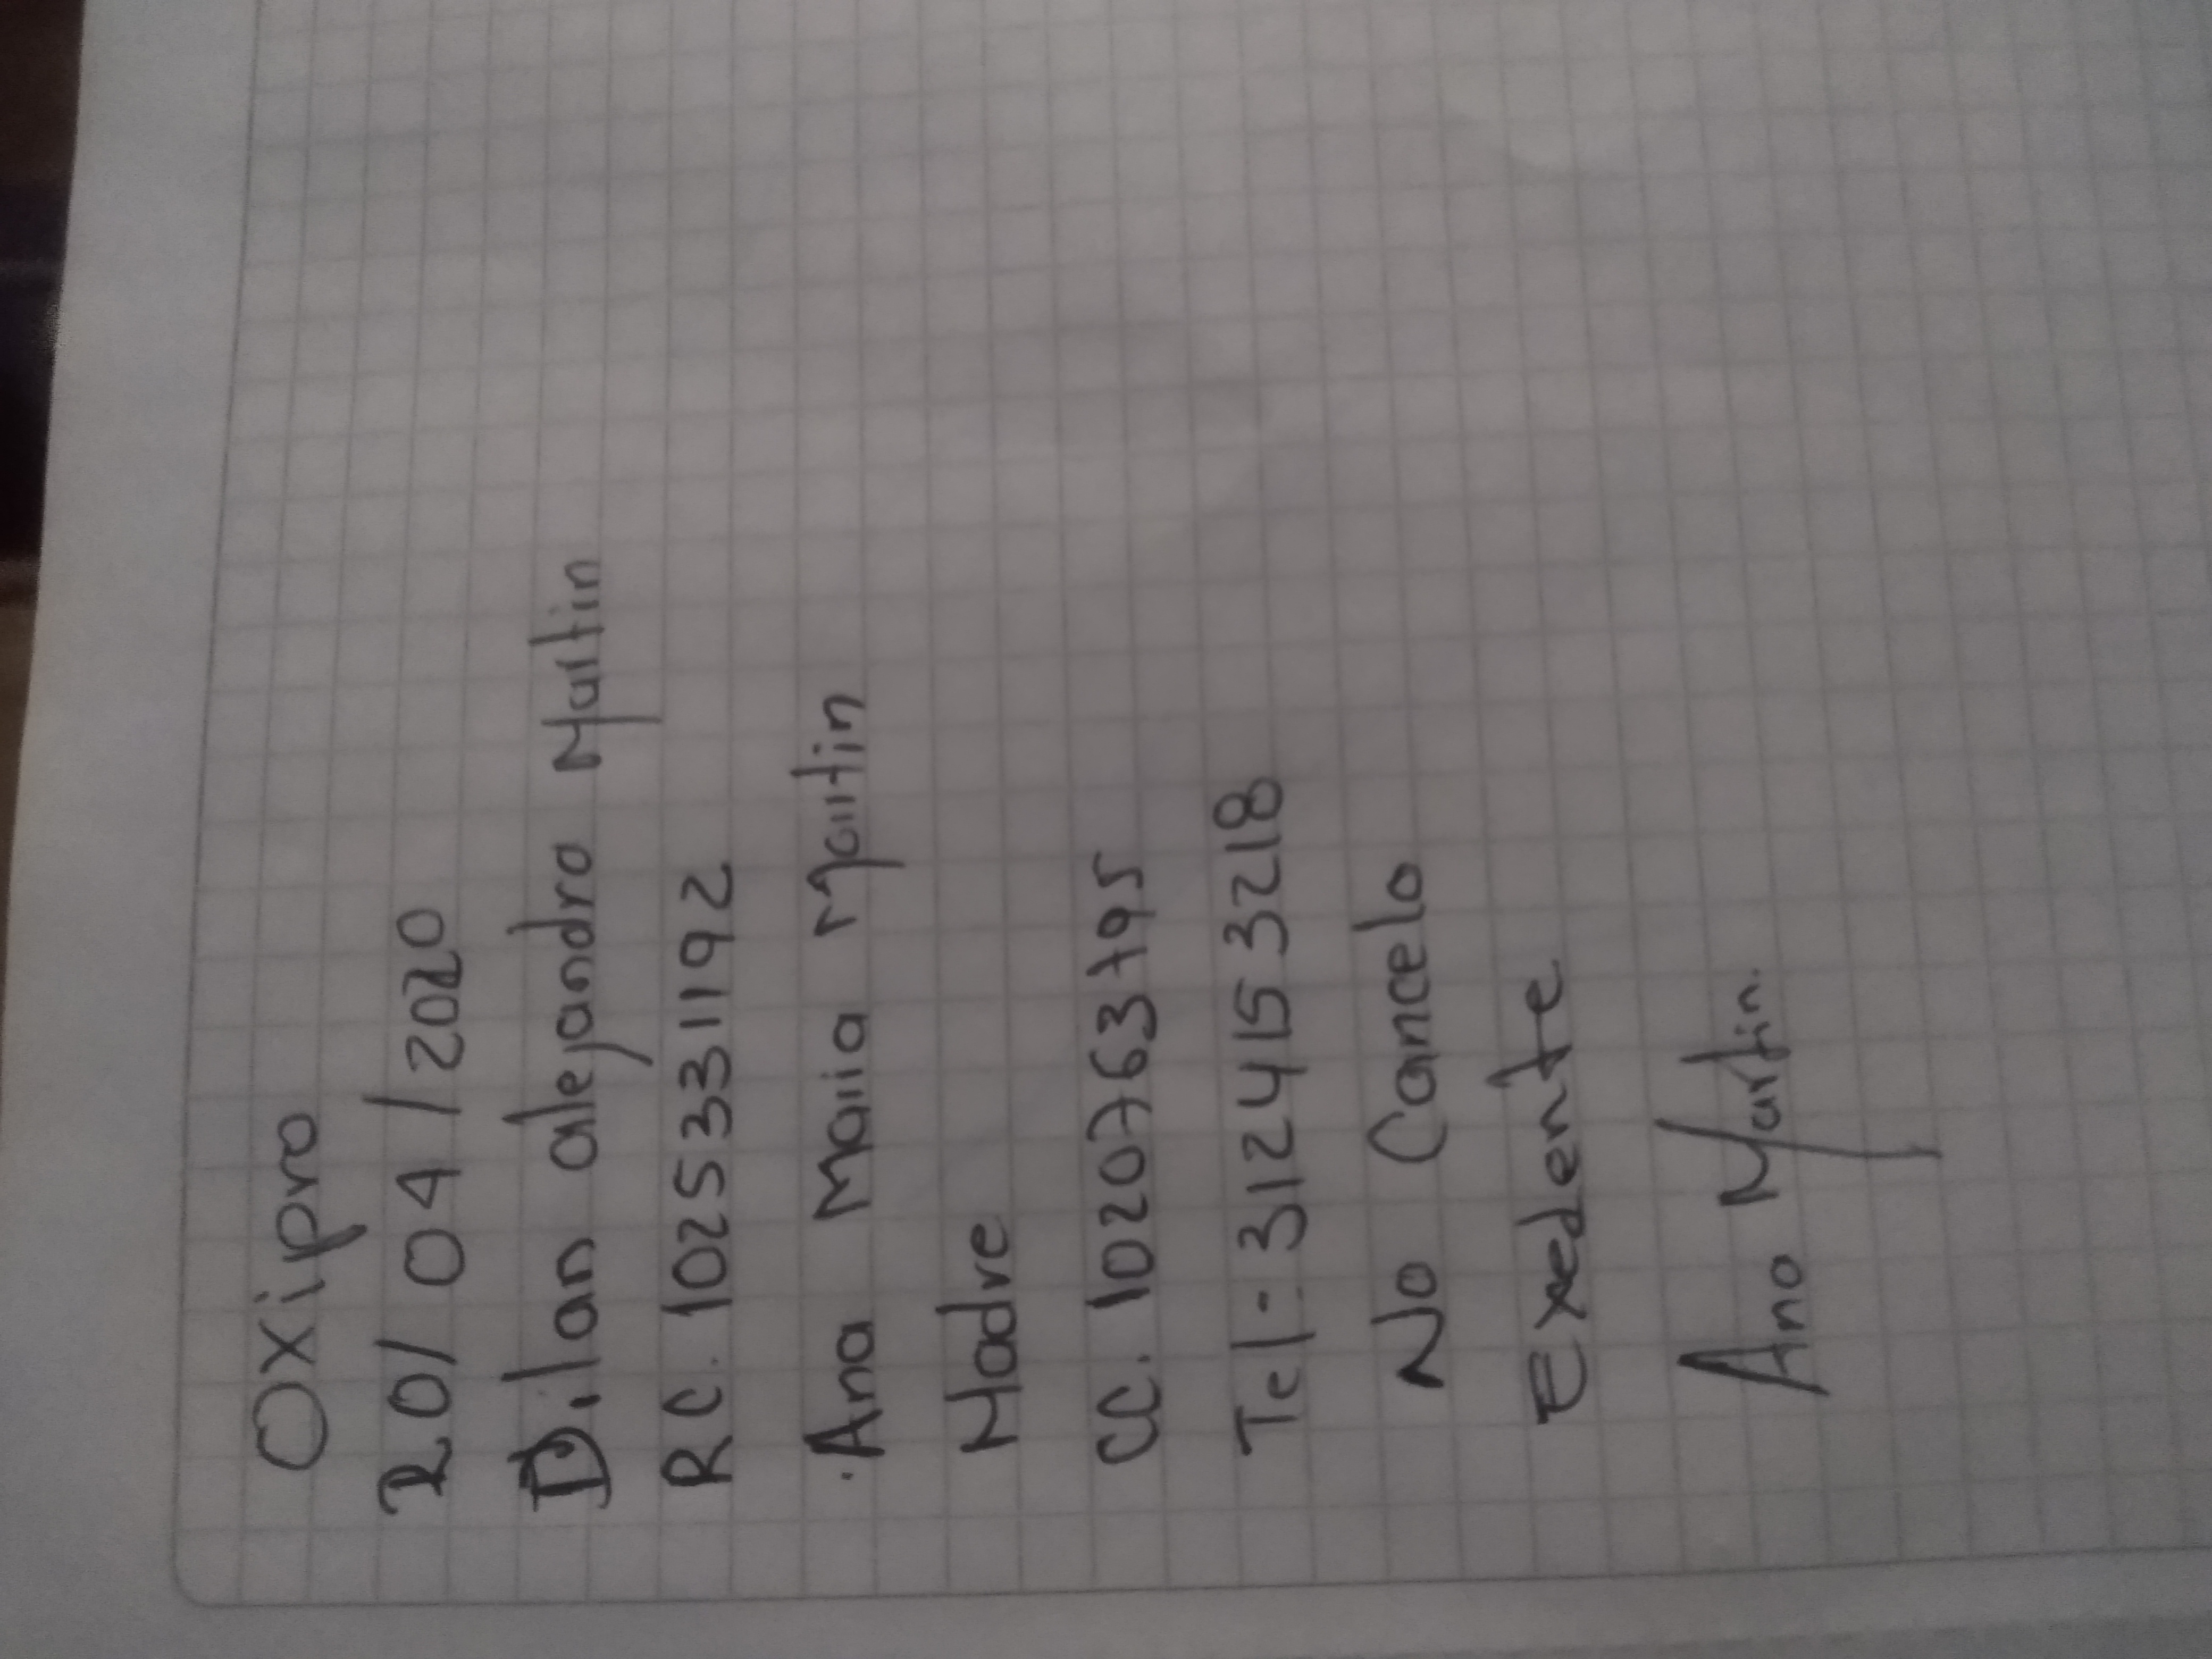 Oxipro
20/ 04 /2020
Dilan alejandro Martin
RC. 1025331192
. Ana Maria Martin
Madre
CC. 1020763795
Tel-: 3124153218
No Cancelo
Exedente
Ana Martin.